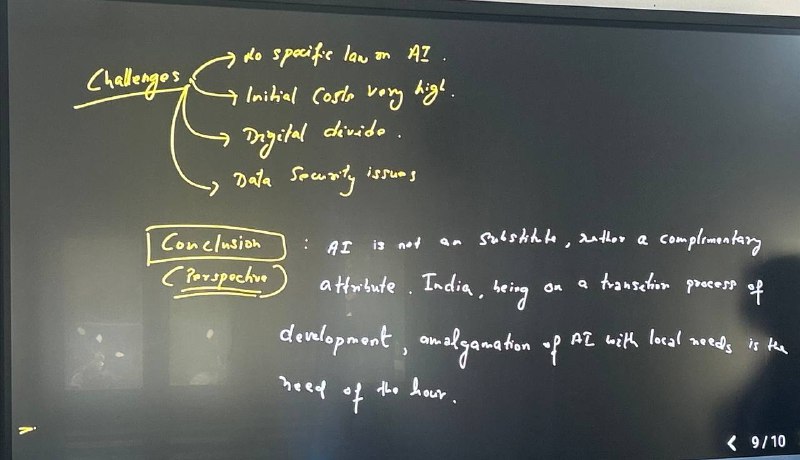 Challenges
No specific law on AI.
Initial Costs very high.
Digital divide.
Data Security issues
Conclusion : AI is not an substitute, rather a complimentary
(Perspective) attribute. India, being on a transition process of
development, amalgamation of AI with local needs is the
need of the hour.
< 9/10